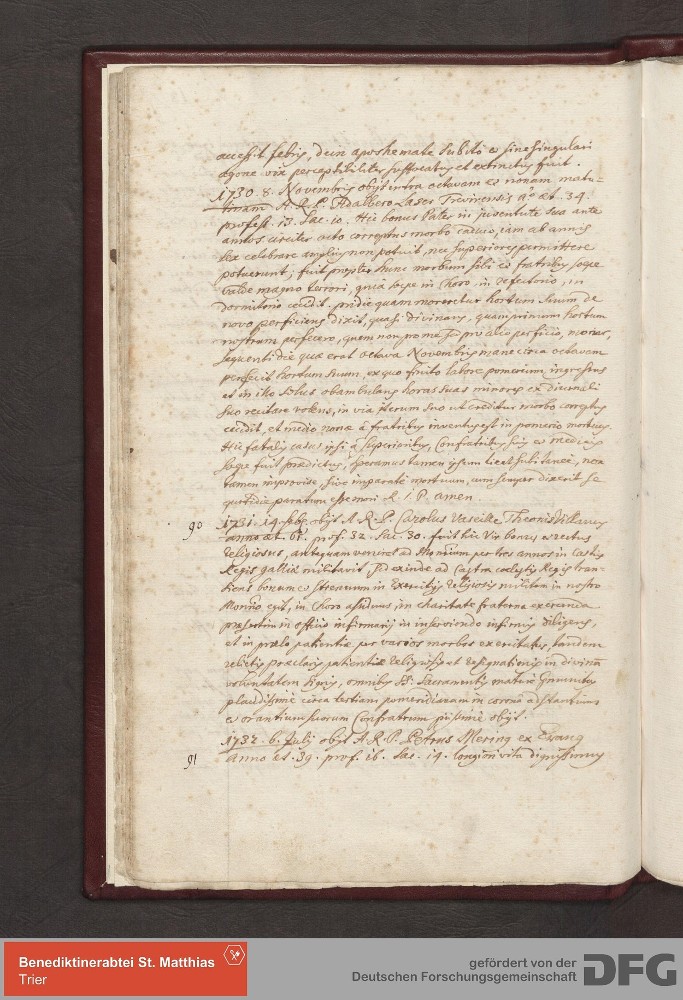 accessit febris, dein aposthemate subitò et sine singulari
agone vix perceptibiliter suffocatus et extinctus fuit.
1730. 8. Novembris obijt intra octavam et nonam matu-
tinam A. R. P. Adalbero Laser Trevirensis aº æt. 34.
profess. 13. Sac. 10. Hic bonus Pater in juventute sua ante
annos circiter octo correptus morbo caduco, iam ab annis
sex celebrare amplius non potuit, nec superiores permittere
potuerunt; fuit propter hunc morbum sibi et fratribus sæpe
valde magno terrori, quia sæpe in choro, in refectorio, in
dormitorio cecidit. pridie quam moreretur hortum suum de
novo perficiens dixit, quasi divinans, quamprimum hortum
nostrum perfecero, quem non pro me sed pro alio perficio, moriar,
sequenti die quæ erat octava Novembris mane circa octavam
perfecit hortum suum, ex quo finito labore pomerium ingressus
et in illo solus obambulans horas suas minores ex diurnali
suo recitare volens, in via iterum suo ut creditur morbo correptus
cecidit, et medio nonæ à fratribus inventus est in pomerio mortuus.
Hic fatalis casus ipsi à superioribus, confratribus suis et medicis
sæpe fuit prædictus, speramus tamen ipsum licet subitaneè, non
tamen improvise, sive imparatè mortuum, cum semper dixerit se
quotidie paratum esse mori R. I. P. amen
90 1731. 14. febr. obijt A. R. P. Carolus Vaseille Theonis Villanus
anno æt. 61. prof. 32. Sac. 30. fuit hic vir bonus et rectus
religiosus, antequam veniret ad Monrium per tres annos in castris
Regis galliæ militavit, sed exinde ad castra cœlestis Regis tran-
siens bonum et strenuum in exercitijs religiosis militem in nostro
Monrio egit, in choro assiduus, in charitate fraterna exercenda
præsertim in officio infirmarij in inserviendo infirmis diligens,
et in prælo patientiæ per varios morbos exercitatus, tandem
relictis præclaris patientiæ religiosis et resignationis in divinã
voluntatem signis, omnibus SS. Sacramentis maturè præmunitus
placidissimè circa tertiam pomeridianam in coronâ adstantium
et orantium suorum confratrum pijssimè obijt.
1732. 6. Julij obijt A. R. P. Petrus Mering ex Evang
91 anno æt. 39. prof. 16. Sac. 14. longiori vita dignissimus
Benediktinerabtei St. Matthias
Trier
gefördert von der
Deutschen Forschungsgemeinschaft
DFG